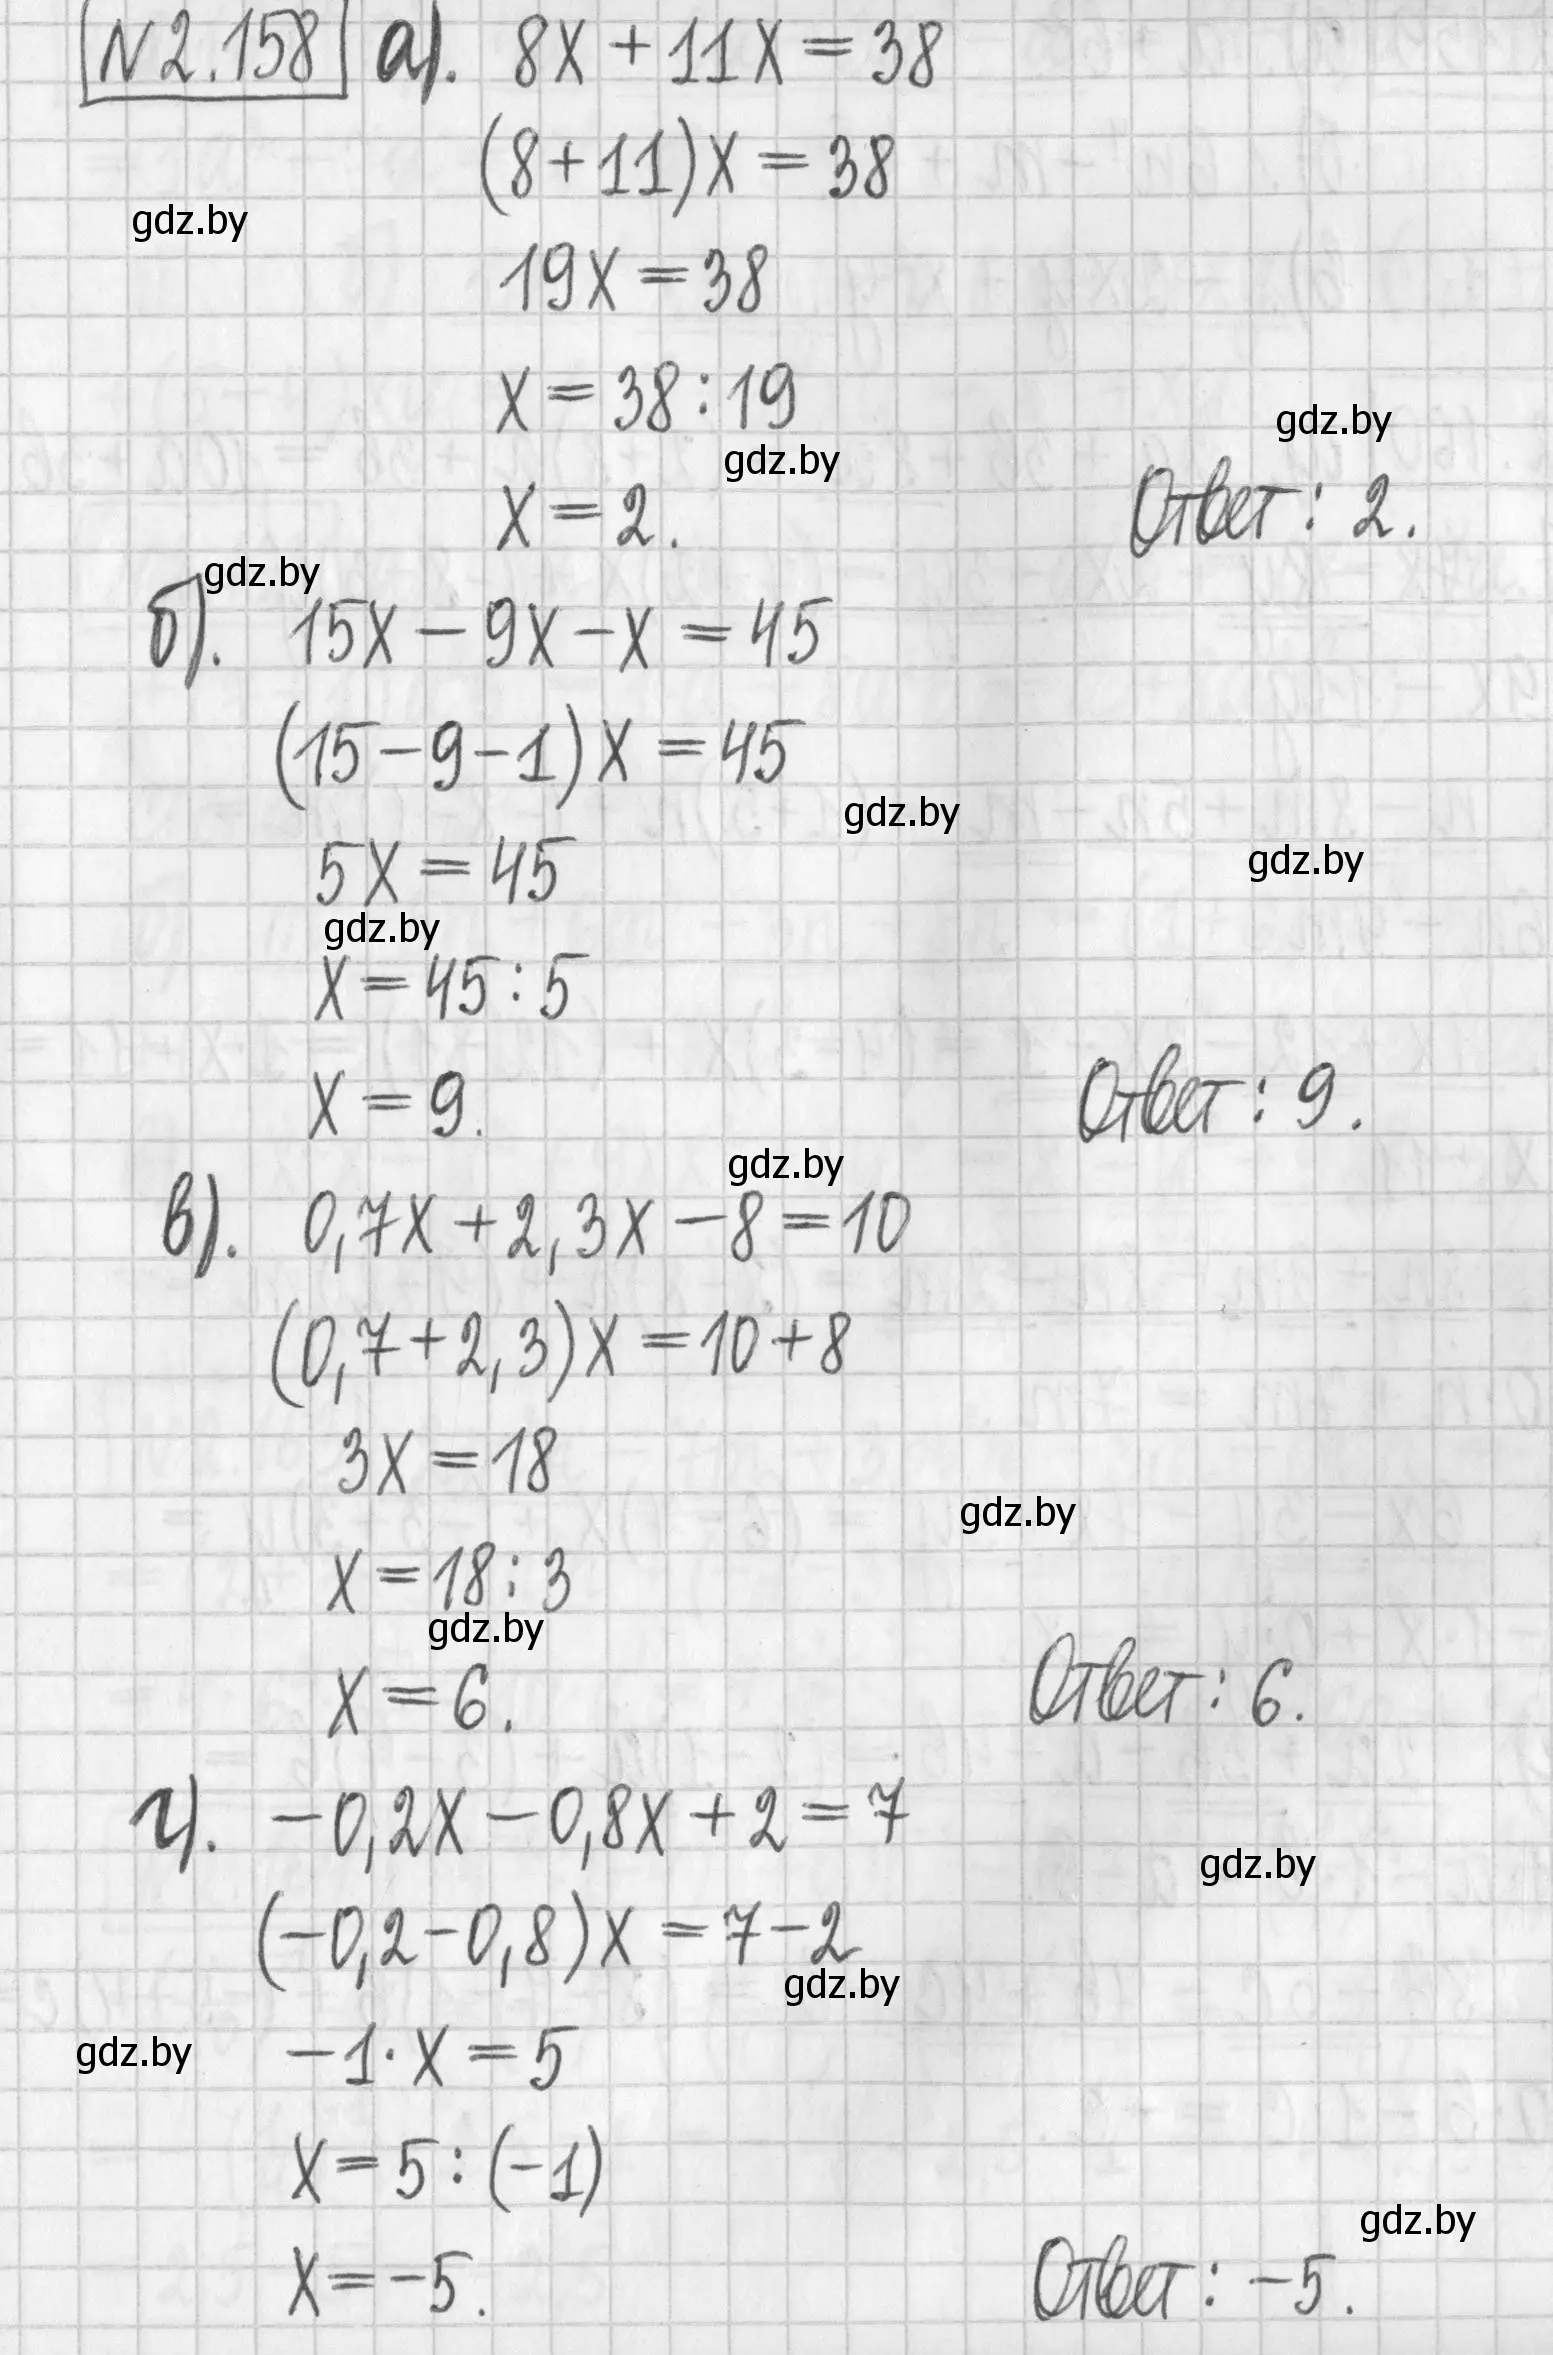 N2.158 а). 8x + 11x = 38
(8+11)x = 38
gdz.by
19x = 38
x = 38 : 19
gdz.by
gdz.by
x = 2.
Ответ: 2.
gdz.by
б). 15x - 9x - x = 45
(15-9-1)x = 45
gdz.by
5x = 45
gdz.by
gdz.by
x = 45 : 5
x = 9.
Ответ: 9.
gdz.by
в). 0,7x + 2,3x - 8 = 10
(0,7+2,3)x = 10+8
3x = 18
gdz.by
x = 18 : 3
gdz.by
x = 6.
Ответ: 6.
г). -0,2x - 0,8x + 2 = 7
gdz.by
(-0,2-0,8)x = 7-2
gdz.by
gdz.by
-1·x = 5
x = 5 : (-1)
gdz.by
x = -5.
Ответ: -5.